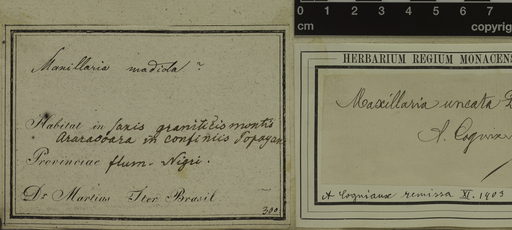 0 1 2 3 4 5 6 7
cm
copyrig
Maxillaria madida ?
Habitat in saxis graniticis montis
Araracoara in confiniis Popayan
Provinciae flum. Nigri.
Dr. Martius Iter Brasil
300.
HERBARIUM REGIUM MONACENS
Maxillaria uncata
A. Cogniaux
A Cogniaux remissa XI. 1903